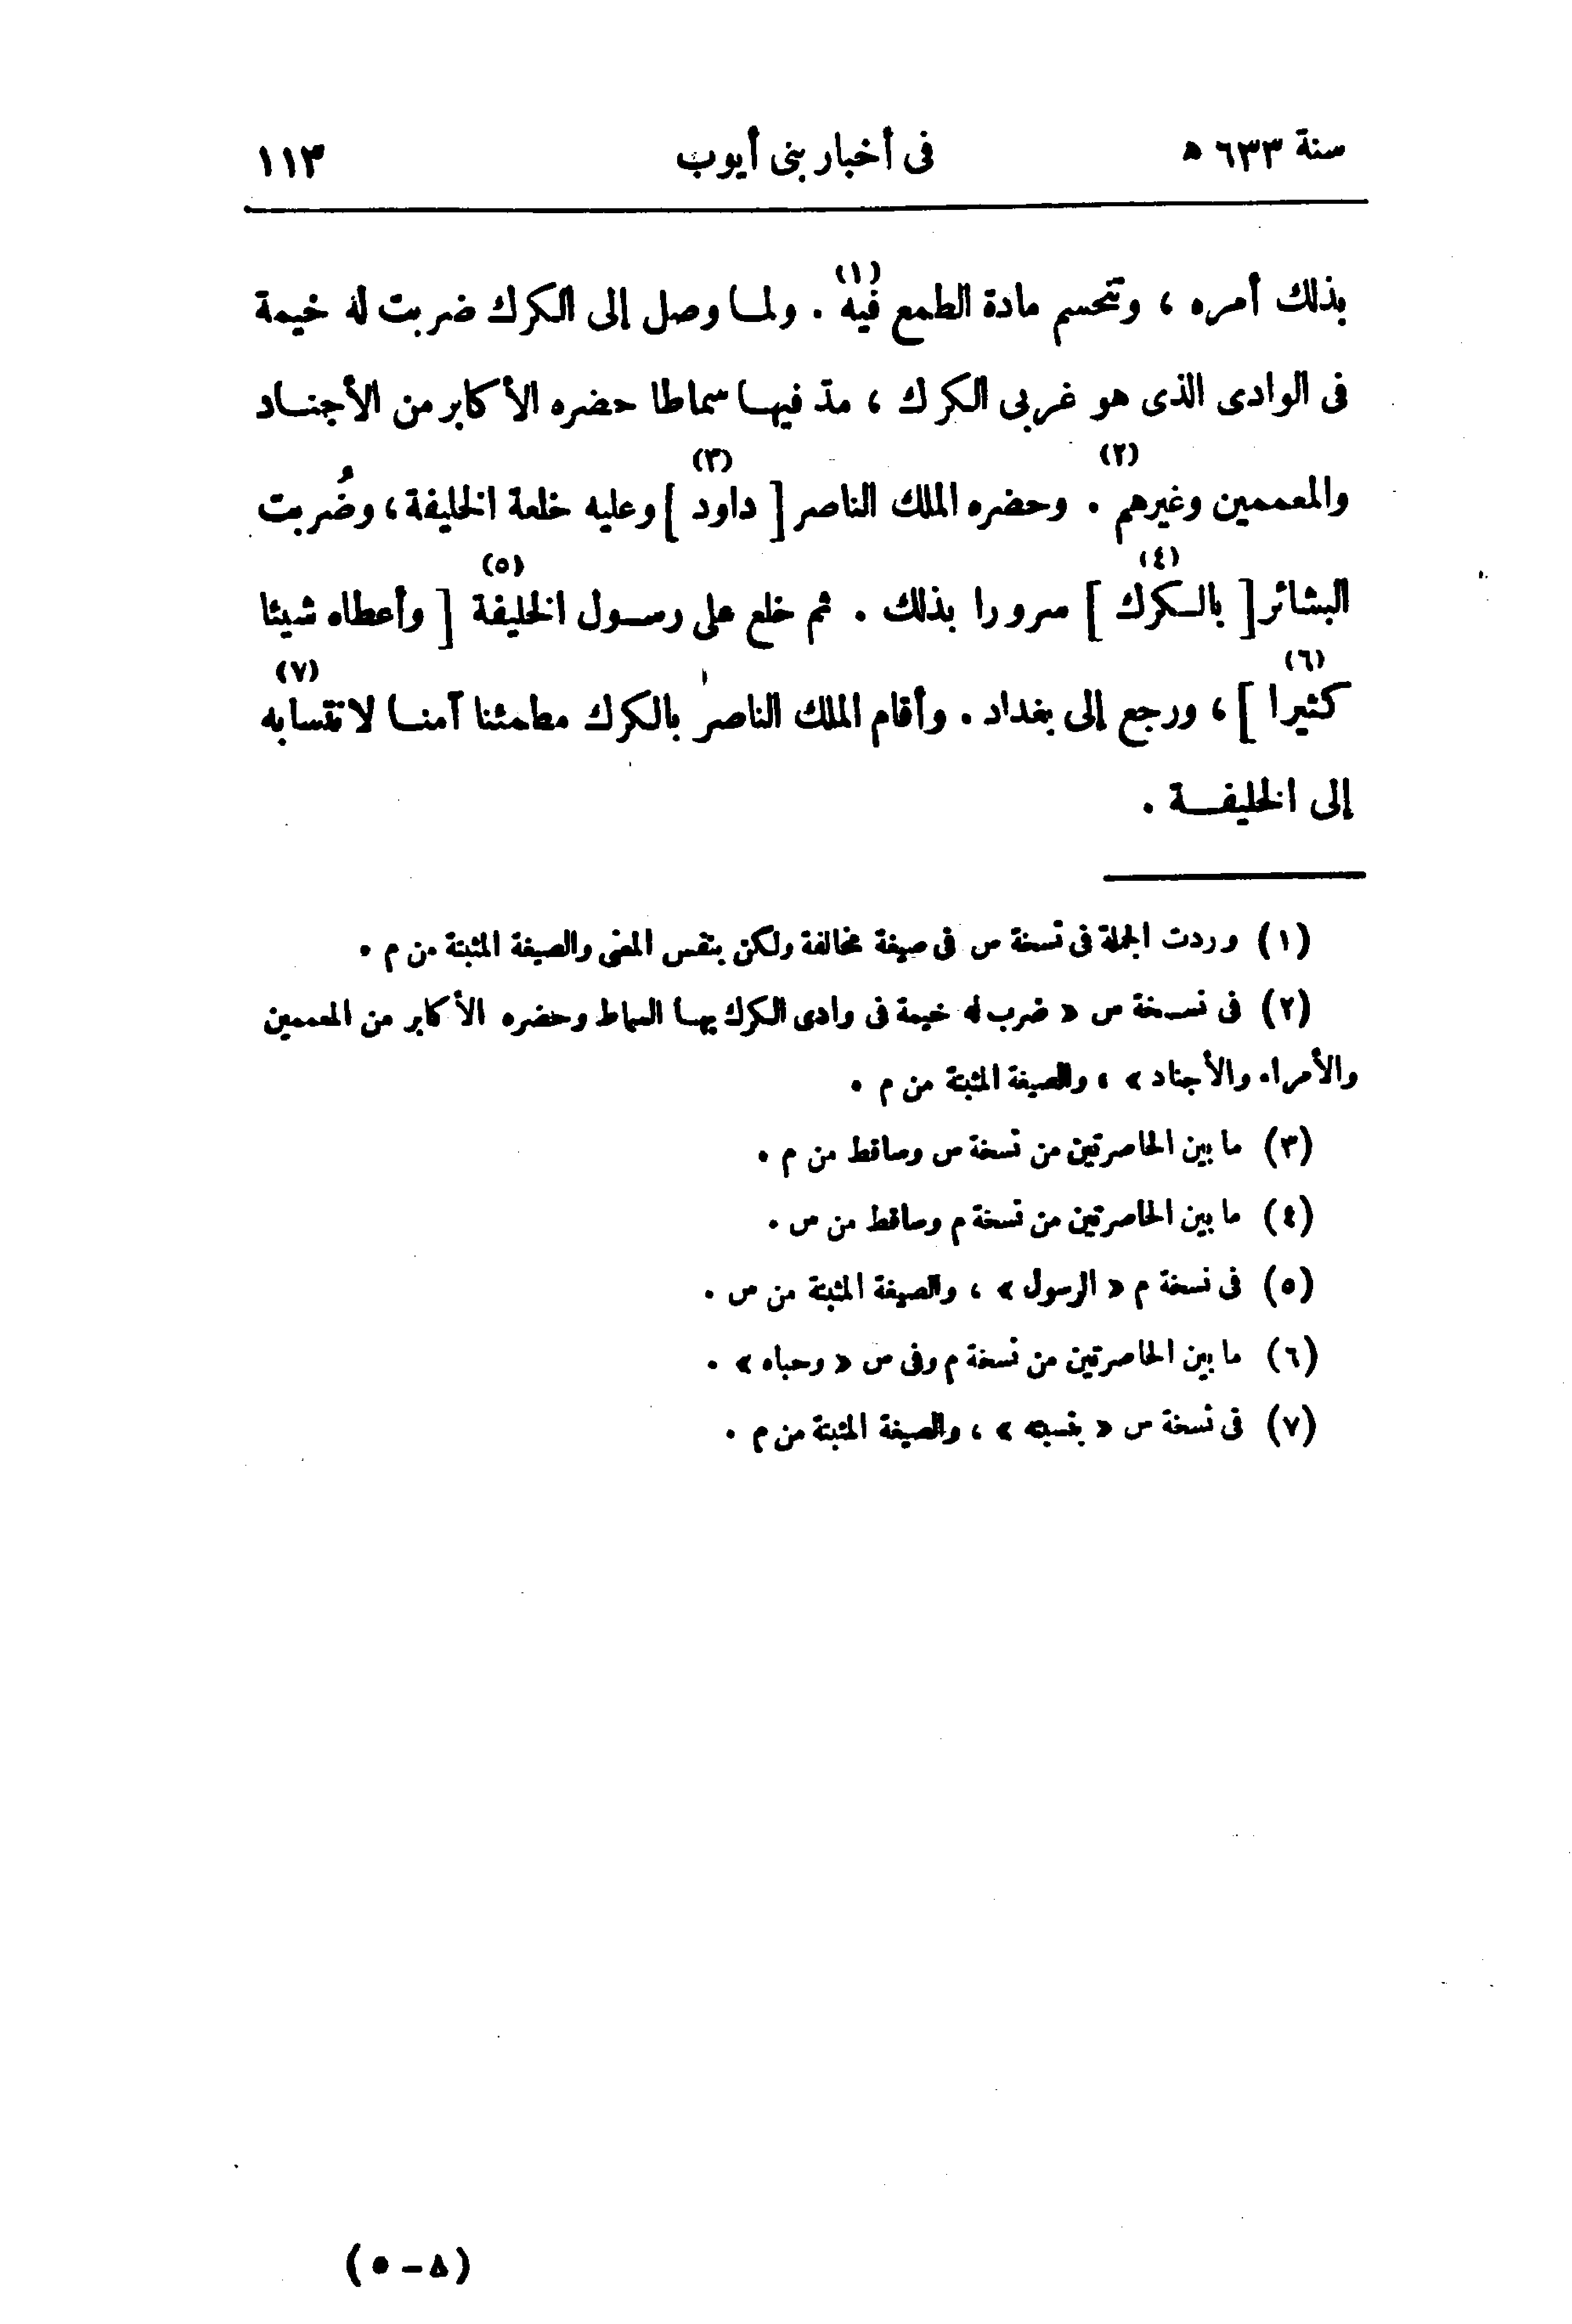 سنة ٦٣٣ ه فى أخبار بنى أيوب ١١٣
بذلك أمره ، وتنحسم مادة الطمع فيه (١) . ولمـا وصل إلى الكرك ضربت له خيمة
فى الوادى الذى هو غربى الكرك ، مدّ فيهـا سماطا حضره الأكابر من الأجنـاد
والمعممين وغيرهم (٢) . وحضره الملك الناصر [ داود ] (٣) وعليه خلعة الخليفة ، وضُربت
البشائر [ بالـكرك ] (٤) سرورا بذلك . ثم خلع على رسـول الخليفة (٥) [ وأعطاه شيئا
كثيرا ] (٦) ، ورجع إلى بغداد . وأقام الملك الناصر بالكرك مطمئنا آمنـا لانتسابه (٧)
إلى الخليفـة .
(١) وردت الجملة فى نسخة س فى صيغة مخالفة ولكن بنفس المعنى والصيغة المثبتة من م .
(٢) فى نسـخة س « ضرب له خيمة فى وادى الكرك بهـا السماط وحضره الأكابر من المعممين
والأمراء والأجناد » ، والصيغة المثبتة من م .
(٣) ما بين الحاصرتين من نسخة س وساقط من م .
(٤) ما بين الحاصرتين من نسخة م وساقط من س .
(٥) فى نسخة م « الرسول » ، والصيغة المثبتة من س .
(٦) ما بين الحاصرتين من نسخة م وفى س « وحباه » .
(٧) فى نسخة س « بنسبه » ، والصيغة المثبتة من م .
(٨ – ٥)